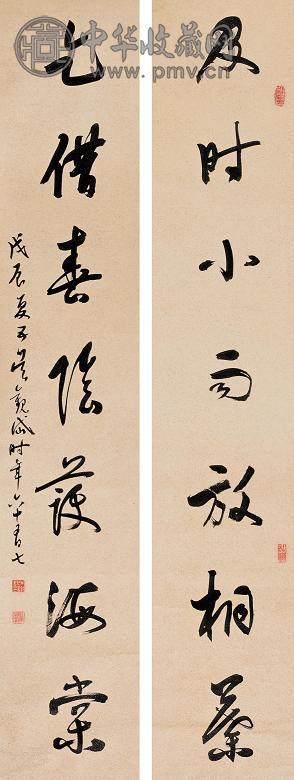 及时小雨放桐叶
乞借春阴护海棠
戊辰夏五 吴观岱时年六十有七
中华收藏网
www.pmv.cn